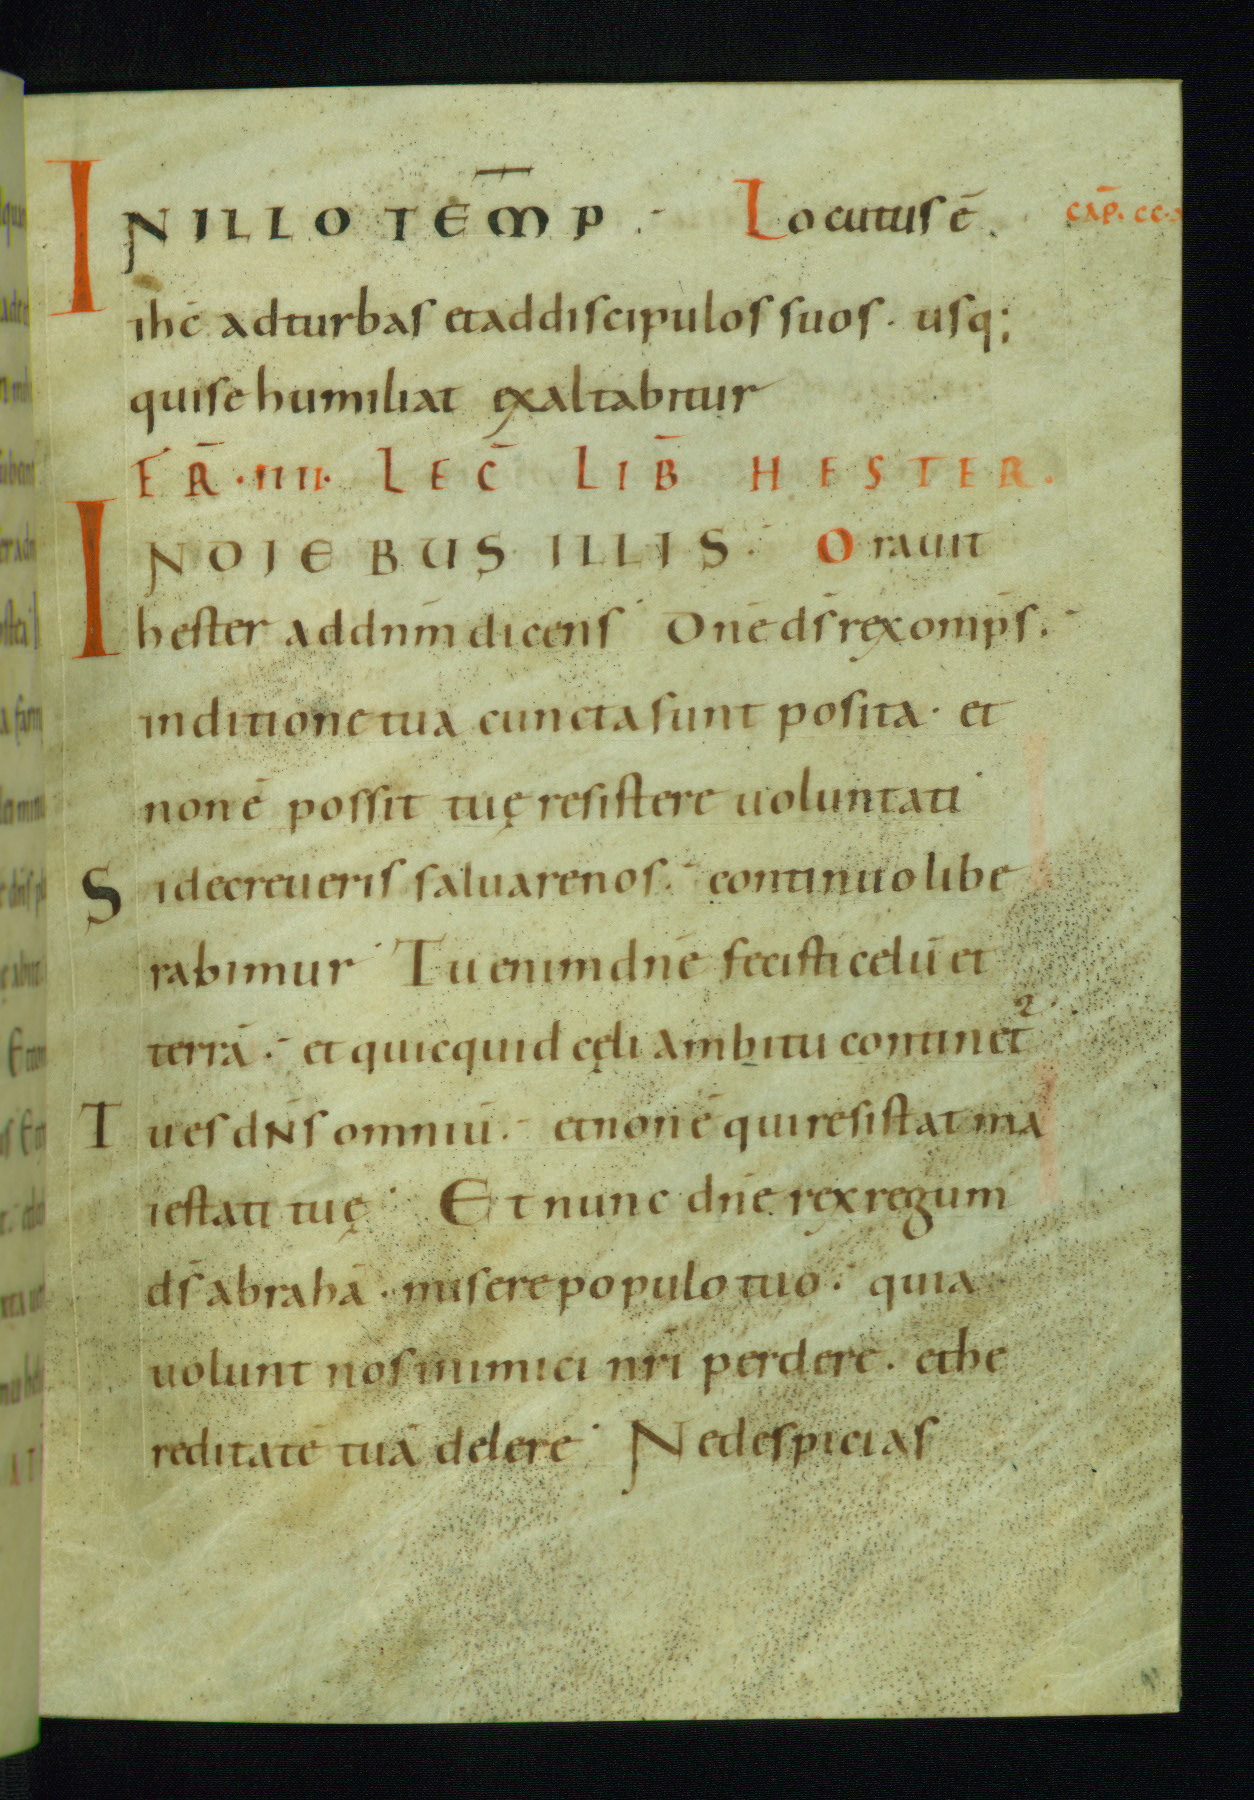 IN ILLO TEM̅P · Locutus ē. CAP̄. CC.
ihc̄ ad turbas et ad discipulos suos. usq;
qui se humiliat exaltabitur
FER̄. IIII. LEC̄ LIB̄ HESTER.
IN DIEBUS ILLIS. Orauit
hester ad dnm̄ dicens Dnē ds̄ rex omp̄s.
in ditione tua cuncta sunt posita. et
non ē possit tuę resistere uoluntati
Si decreueris saluare nos. continuo libe
rabimur Tu enim dnē fecisti celū et
terrā. et quicquid cęli ambitu continet2
Tu es dn̄s omniū. et non ē qui resistat ma
iestati tuę Et nunc dnē rex regum
ds̄ abrahā. misere populo tuo. quia
uolunt nos inimici nr̄i perdere. et he
reditatē tuā delere Ne despicias